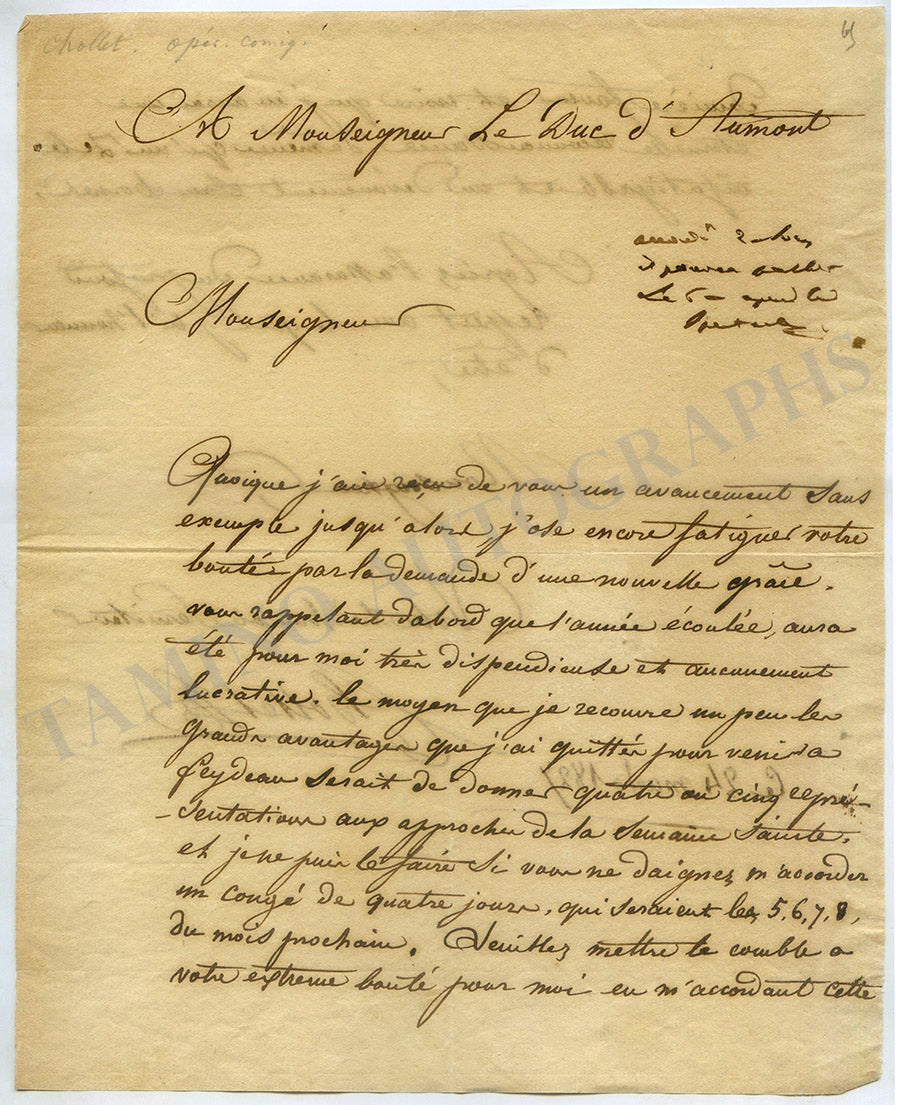 Chollet. opér. comiq.
A Monseigneur Le Duc d'Aumont
Le
Monseigneur
Quoique j'aie reçu de vous un avancement sans
exemple jusqu'alors j'ose encore fatiguer votre
bonté par la demande d'une nouvelle grâce.
vous rappelant d'abord que l'année écoulée, aura
été pour moi très dispendieuse et aucunement
lucrative. le moyen que je recouvre un peu les
grands avantages que j'ai quittés pour venir a
feydeau serait de donner quatre ou cinq repré-
-sentations aux approches de la Semaine Sainte,
et je ne puis le faire si vous ne daignez m'accorder
un congé de quatre jours, qui seraient les 5, 6, 7, 8,
du mois prochain. Veuillez mettre le comble a
votre extreme bonté pour moi en m'accordant cette
TAMINO AUTOGRAPHS